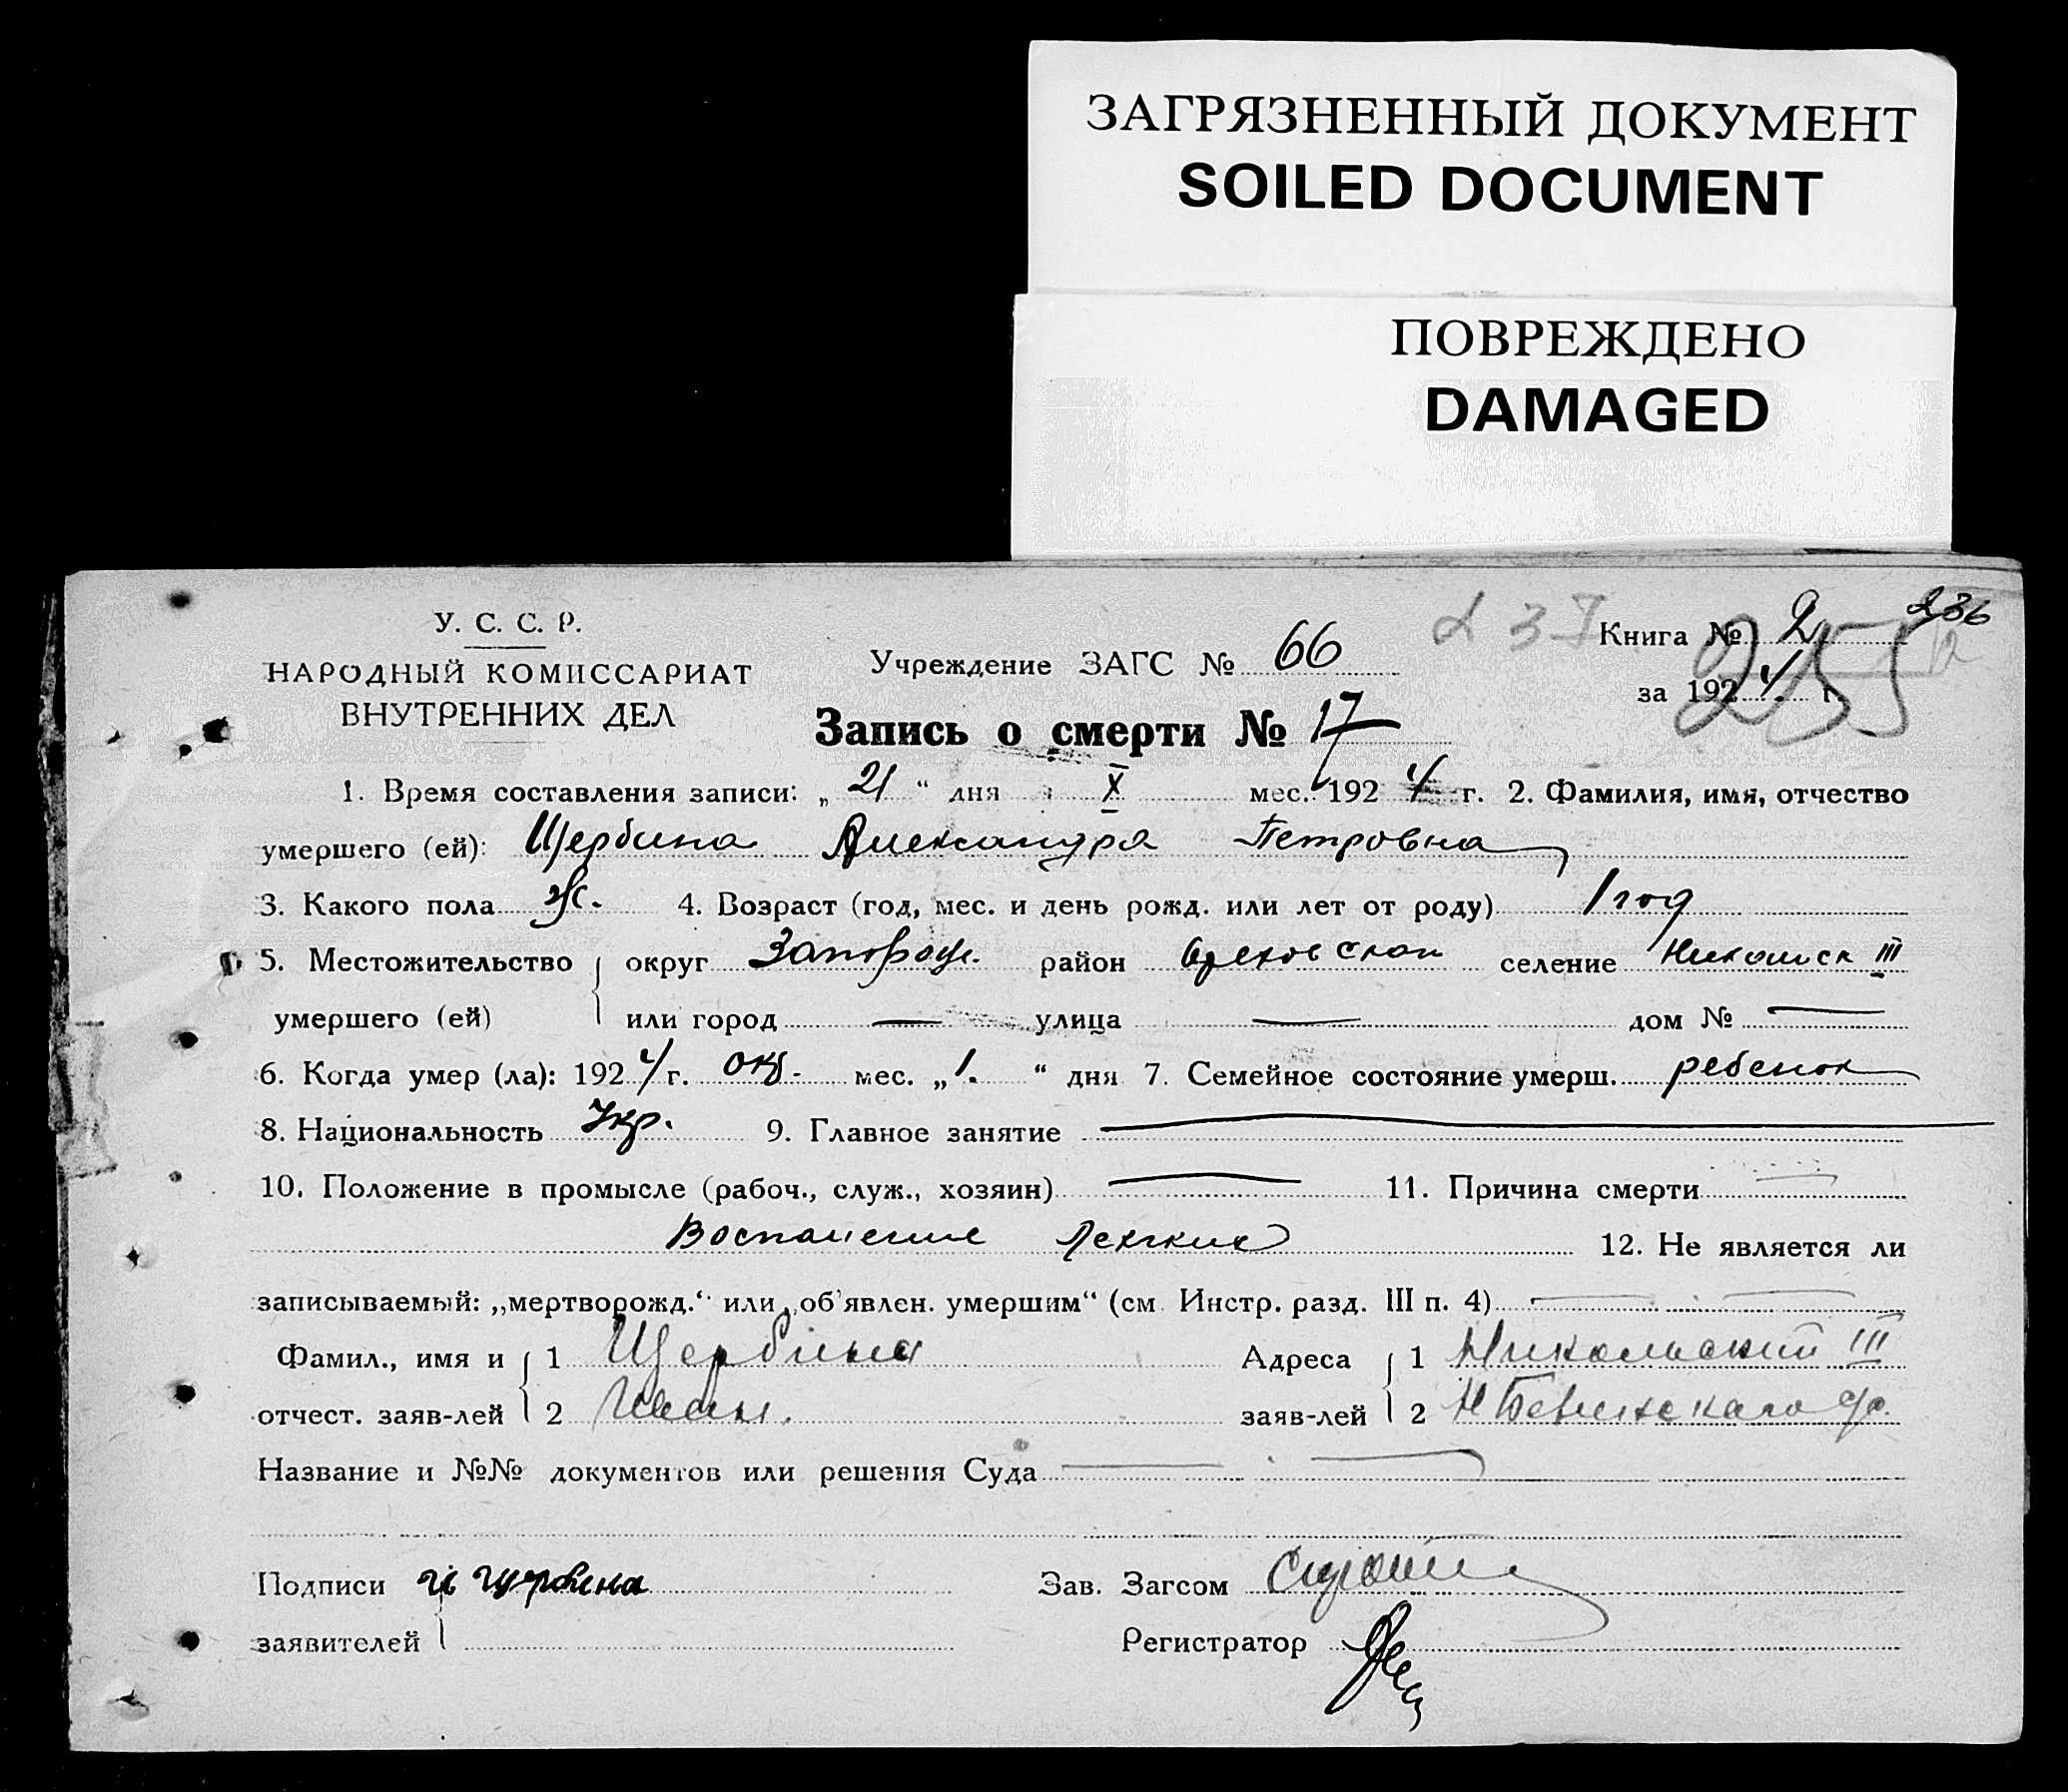 ЗАГРЯЗНЕННЫЙ ДОКУМЕНТ
SOILED DOCUMENT
ПОВРЕЖДЕНО
DAMAGED
236
У. С. С. Р.
НАРОДНЫЙ КОМИССАРИАТ
ВНУТРЕННИХ ДЕЛ
Учреждение ЗАГС № 66
Книга № 2
за 1924 г.
255
Запись о смерти № 17
1. Время составления записи: „ 21 “ дня X мес. 1924 г. 2. Фамилия, имя, отчество
умершего (ей): Щербина Александра Петровна
3. Какого пола ж. 4. Возраст (год, мес. и день рожд. или лет от роду) 1 год
5. Местожительство округ Запорож. район Ореховский селение Никольск III
умершего (ей) или город — улица — дом № —
6. Когда умер (ла): 1924 г. окт. мес. „ 1. “ дня 7. Семейное состояние умерш. ребенок
8. Национальность Укр. 9. Главное занятие —
10. Положение в промысле (рабоч., служ., хозяин) — 11. Причина смерти
Воспаление Легких 12. Не является ли
записываемый: „мертворожд.“ или „об'явлен. умершим“ (см. Инстр. разд. III п. 4) —
Фамил., имя и 1 Щербина Адреса 1 Никольский III
отчест. заяв-лей 2 Иван. заяв-лей 2
Название и №№ документов или решения Суда —
Подписи И Щербина Зав. Загсом
заявителей Регистратор